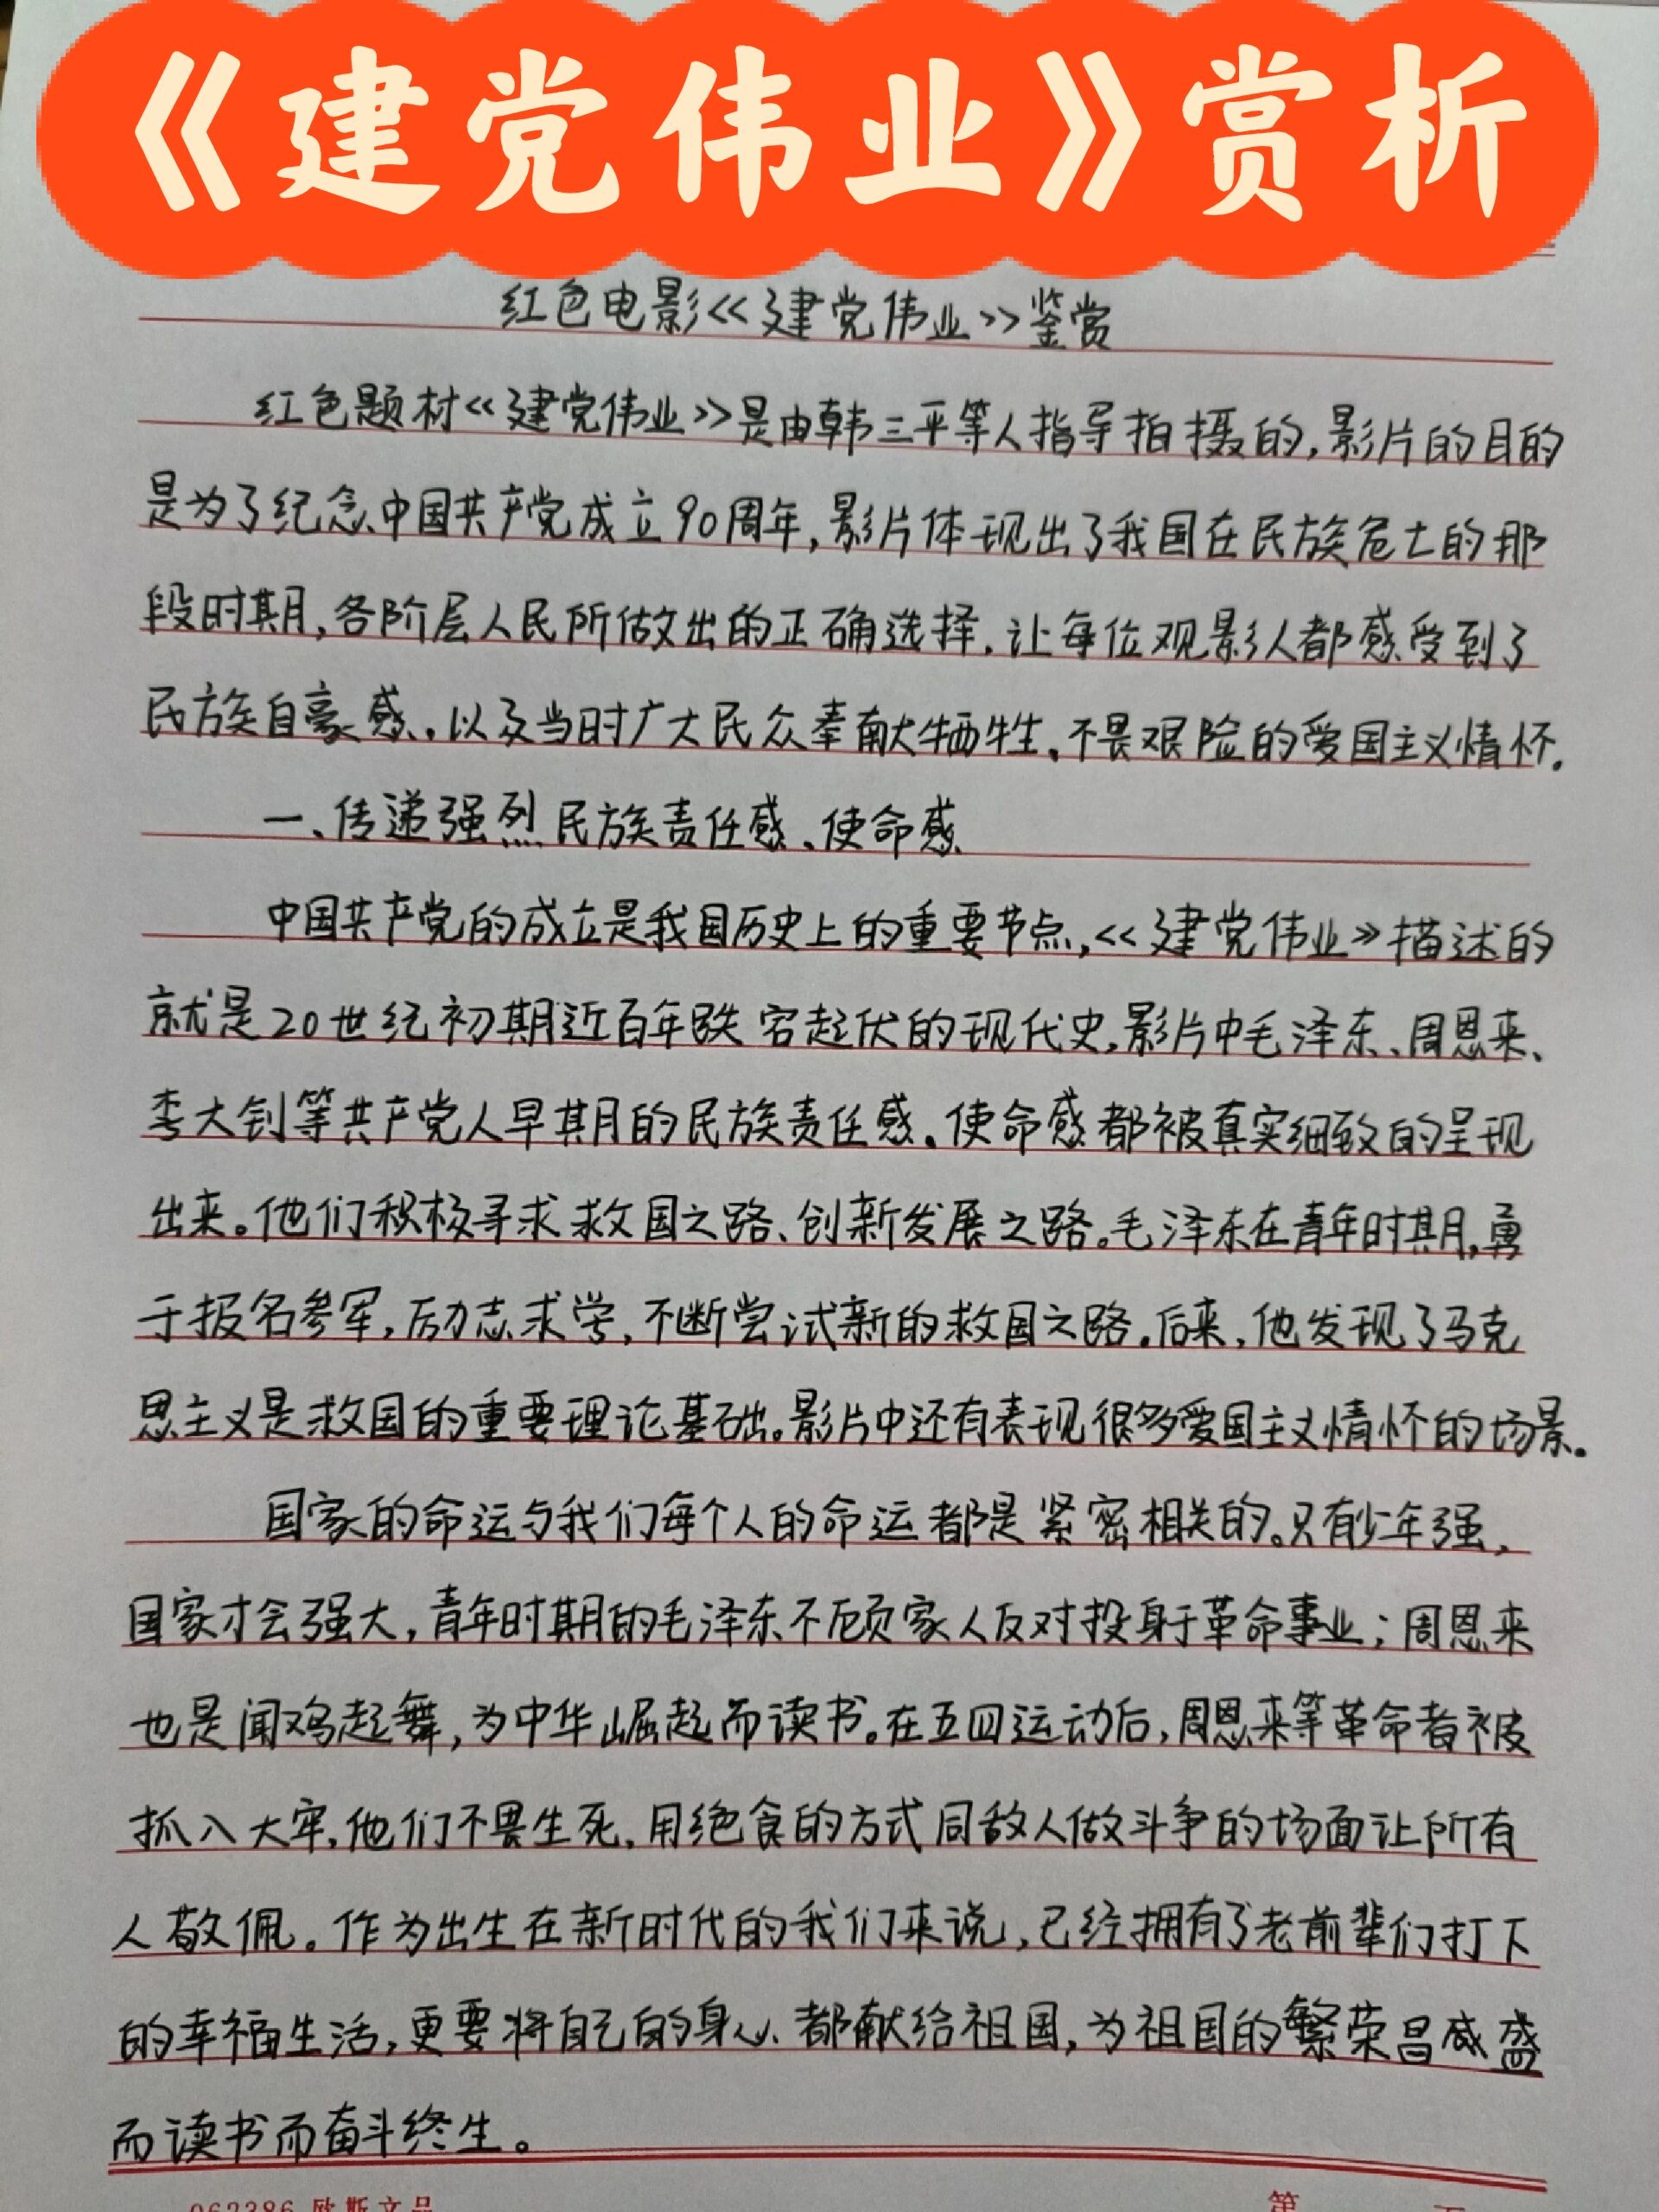 《建党伟业》赏析
红色电影《建党伟业》鉴赏
红色题材《建党伟业》是由韩三平等人指导拍摄的,影片的目的
是为了纪念中国共产党成立90周年,影片体现出了我国在民族危亡的那
段时期,各阶层人民所做出的正确选择.让每位观影人都感受到了
民族自豪感.以及当时广大民众奉献牺牲、不畏艰险的爱国主义情怀.
一、传递强烈民族责任感、使命感
中国共产党的成立是我国历史上的重要节点,《建党伟业》描述的
就是20世纪初期近百年跌宕起伏的现代史,影片中毛泽东、周恩来、
李大钊等共产党人早期的民族责任感、使命感都被真实细致的呈现
出来。他们积极寻求救国之路、创新发展之路。毛泽东在青年时期,勇
于报名参军,励志求学,不断尝试新的救国之路.后来,他发现了马克
思主义是救国的重要理论基础。影片中还有表现很多爱国主义情怀的场景。
国家的命运与我们每个人的命运都是紧密相关的。只有少年强,
国家才会强大,青年时期的毛泽东不顾家人反对投身于革命事业;周恩来
也是闻鸡起舞,为中华崛起而读书。在五四运动后,周恩来等革命者被
抓入大牢,他们不畏生死,用绝食的方式同敌人做斗争的场面让所有
人敬佩。作为出生在新时代的我们来说,已经拥有了老前辈们打下
的幸福生活,更要将自己的身心都献给祖国,为祖国的繁荣昌盛
而读书而奋斗终生。
062386 欧斯文品
第 页